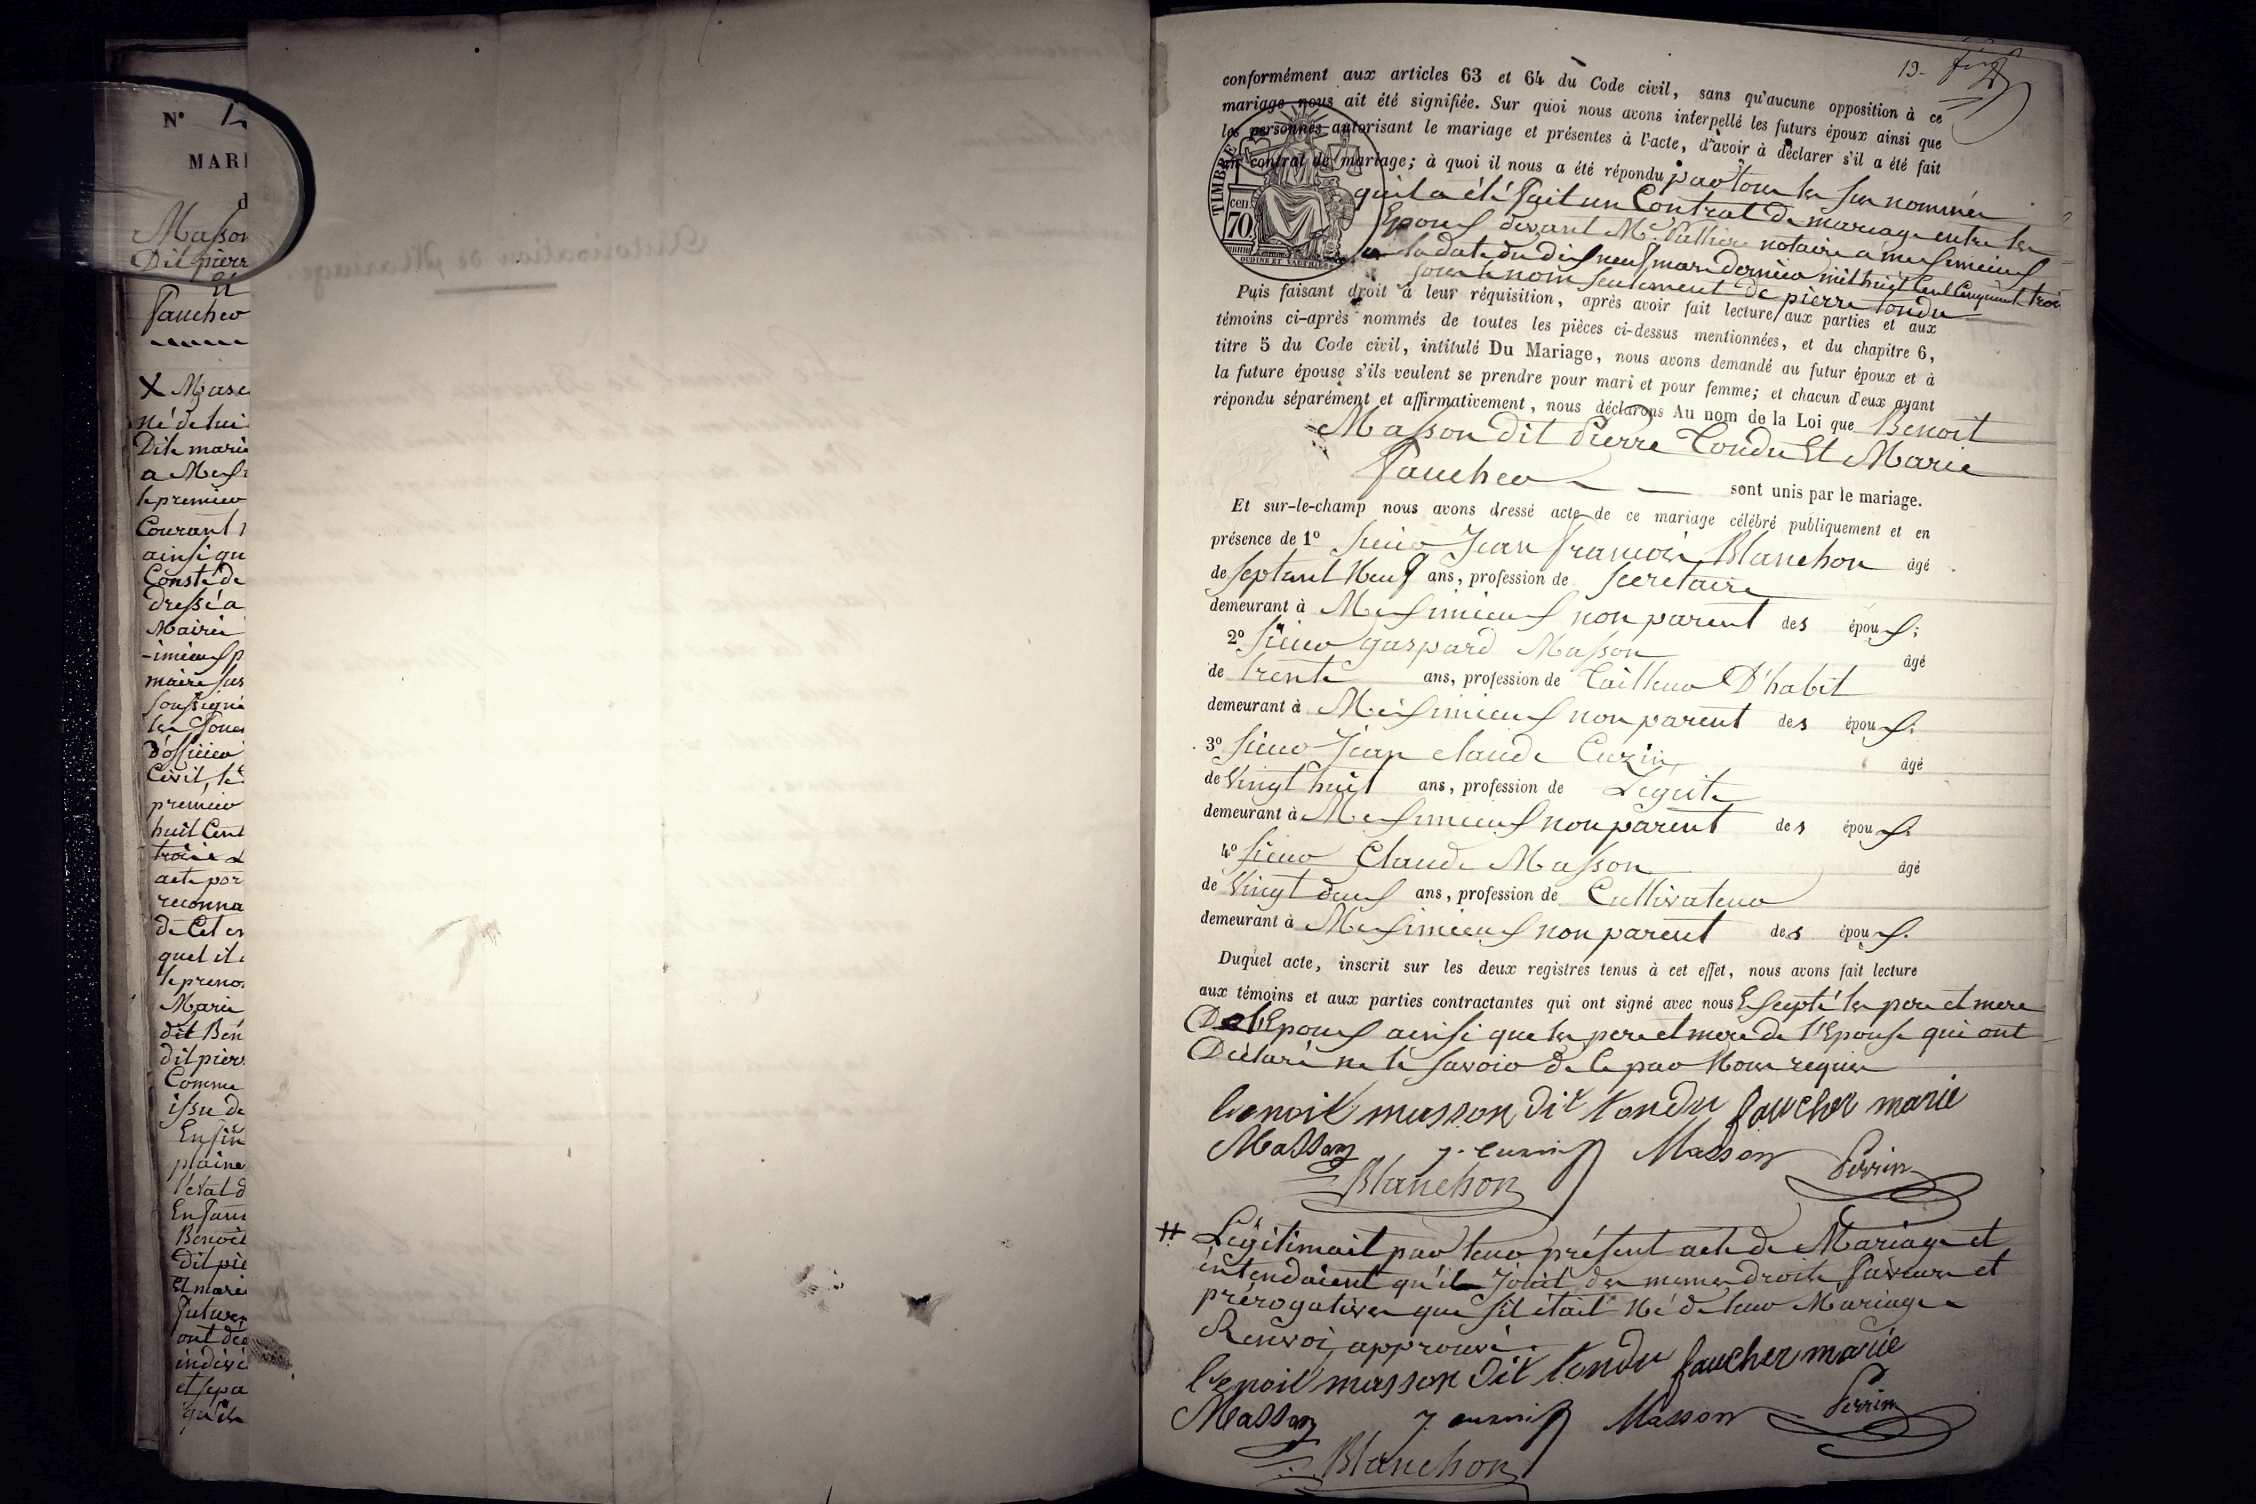 N°
MARI
d
Masson
Dit pierr
Et
Faucher
X Masc
né de lui
Dite marie
a Messi
le premier
Courant
ainsi qu
Conste de
dressé a
Mairie
-imieux p
maire sus
soussigné
les fonc
d'officier
Civil, le
premier
huit Cent
trois
acte por
reconna
de Cet en
quel il
le preno
Marie
dit Ben
dit pierr
Comme
issu de
Enfin
plaine
l'état d
Enfant
Benoit
dit pie
et marie
futurs
ont déc
indivi
et sépa
qu'ils
Autorisation de Mariage.
19.
conformément aux articles 63 et 64 du Code civil, sans qu'aucune opposition à ce
mariage nous ait été signifiée. Sur quoi nous avons interpellé les futurs époux ainsi que
les personnes autorisant le mariage et présentes à l'acte, d'avoir à déclarer s'il a été fait
un contrat de mariage; à quoi il nous a été répondu par tous les sus nommés
qu'il a été fait un Contrat de mariage entre les
Epoux devant Me notaire à messimieux
a la date du dix neuf mars dernier mil huit Cent Cinquante trois
sous le nom seulement de pierre tondu
TIMBRE
cen. 70.
OUDINÉ ET
Puis faisant droit à leur réquisition, après avoir fait lecture aux parties et aux
témoins ci-après nommés de toutes les pièces ci-dessus mentionnées, et du chapitre 6,
titre 5 du Code civil, intitulé Du Mariage, nous avons demandé au futur époux et à
la future épouse s'ils veulent se prendre pour mari et pour femme; et chacun d'eux ayant
répondu séparément et affirmativement, nous déclarons Au nom de la Loi que Benoit
Masson dit Pierre Tondu Et Marie
Faucher sont unis par le mariage.
Et sur-le-champ nous avons dressé acte de ce mariage célébré publiquement et en
présence de 1° Sieur Jean francois Blanchon âgé
de septant Neuf ans, profession de Secretaire
demeurant à Messimieux non parent des époux;
2° Sieur gaspard Masson âgé
de trente ans, profession de Tailleur D'habit
demeurant à Messimieux non parent des époux;
3° Sieur Jean claude Cuzin âgé
de Vingt huit ans, profession de Légiste
demeurant à Messimieux non parent des époux;
4° Sieur Claude Masson âgé
de Vingt deux ans, profession de Cultivateur
demeurant à Messimieux non parent des époux.
Duquel acte, inscrit sur les deux registres tenus à cet effet, nous avons fait lecture
aux témoins et aux parties contractantes qui ont signé avec nous Excepté les pere et mere
De l'Epoux ainsi que les pere et mere de l'Epouse qui ont
Déclaré ne le savoir de ce par Nous requis
benoit masson dit tondu faucher marie
Masson J. cuzin Masson Perrin
Blanchon
# Légitimait par leur présent acte de Mariage et
entendaient qu'il jouit des memes droits faveurs et
prérogatives que s'il était Né de leur Mariage
Renvoi, approuvé.
benoit masson dit tondu faucher marie
Masson J cuzin Masson Perrin
Blanchon